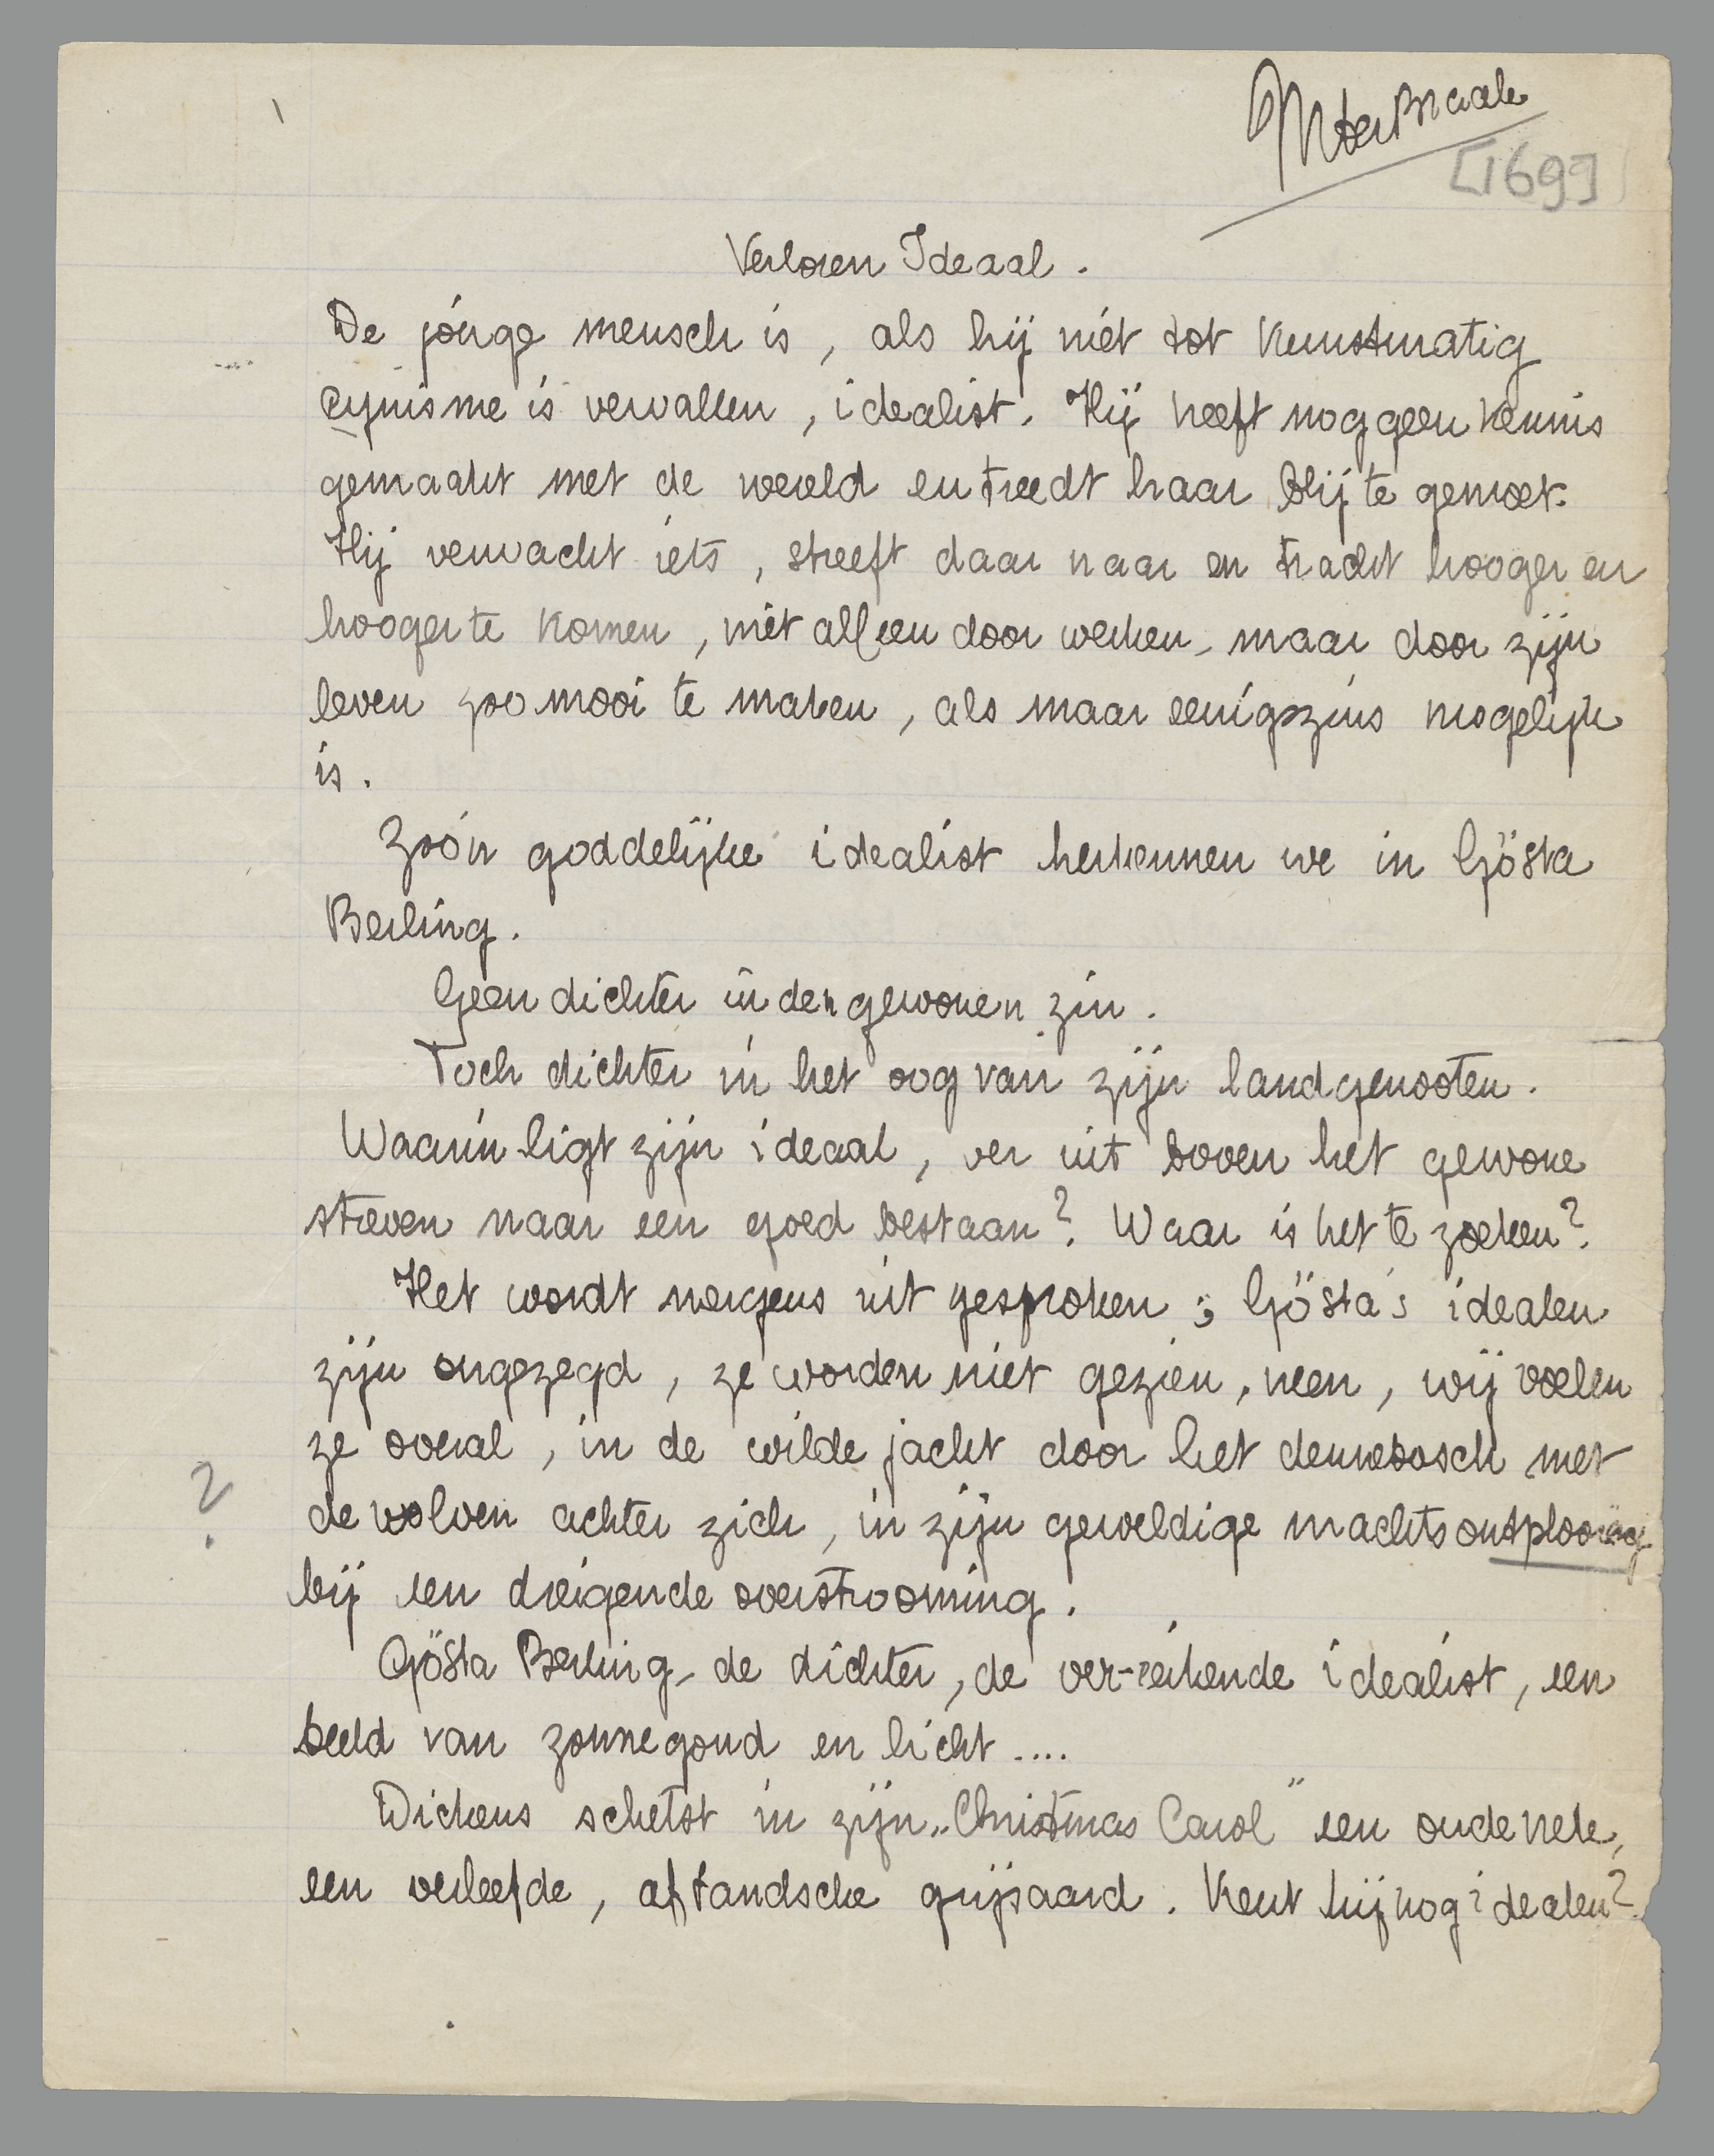 M ter Braak
[169]
Verloren Ideaal.
De jonge mensch is, als hij niet tot kunstmatig
cynisme is vervallen, idealist. Hij heeft nog geen kennis
gemaakt met de wereld en treedt haar blij te gemoet.
Hij verwacht iets, streeft daar naar en tracht hooger en
hooger te komen, niet alleen door werken, maar door zijn
leven zoo mooi te maken, als maar eenigszins mogelijk
is.
Zoo'n goddelijke idealist herkennen we in Gösta
Berling.
Geen dichter in den gewonen zin.
Toch dichter in het oog van zijn landgenooten.
Waarin ligt zijn ideaal, ver uit boven het gewone
streven naar een goed bestaan? Waar is het te zoeken?
Het wordt nergens uit gesproken; Gösta's idealen
zijn ongezegd, ze worden niet gezien, neen, wij voelen
ze overal, in de wilde jacht door het dennebosch met
?
de wolven achter zich, in zijn geweldige machtsontplooiing
bij een dreigende overstrooming.
Gösta Berling, de dichter, de ver-reikende idealist, een
beeld van zonnegoud en licht....
Dickens schetst in zijn „Christmas Carol" een oude vrek,
een verleefde, aftandsche grijsaard. Kent hij nog idealen?